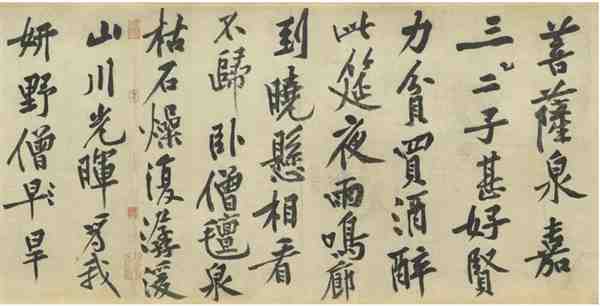 菩薩泉嘉
三二子甚好賢
力貧買酒醉
此筵夜雨鳴廊
到曉懸相看
不歸卧僧氊泉
枯石燥復潺湲
山川光暉為我
妍野僧早旱